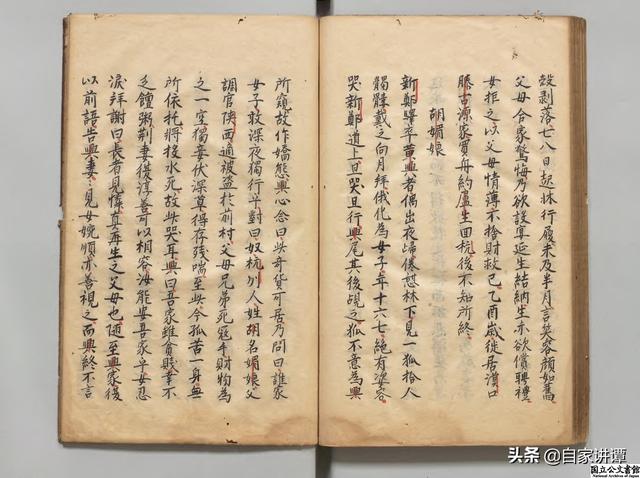 殼剥落七八日起牀行履未及半月言笑容顔如舊
父母合家驚悔乃欲設宴延生結納生亦欲償聘禮
女拒之以父母情薄不捨財救己乙酉歳徙居漢口
滕古源家買舟約盧生面杭後不知所終
胡媚娘
新鄭驛卒黄興者偶出夜歸倦憩林下見一狐拾人
髑髏戴之向月拜俄化為女子年十六七絶有姿容
哭新鄭道上且哭且行興尾其後覘之狐不意為興
所窺故作嬌態興心念曰此奇貨可居乃問曰誰家
女子敢深夜獨行乎對曰奴杭州人姓胡名媚娘父
調官陝西適被盗於前村父母兄弟死寇手財物為
之一空獨妾伏深草得存残喘至此今孤苦一身無
所依托將投水死故此哭耳興曰吾家雖貧賤幸不
乏饘粥荆妻復淳善可以相容汝能安吾家乎女忍
淚拜謝曰長者見憐真再生之父母也随至興家復
以前語告興妻見女婉順亦善視之而興終不言
头条 @自家讲谭
国立公文書館
National Archives of Japan